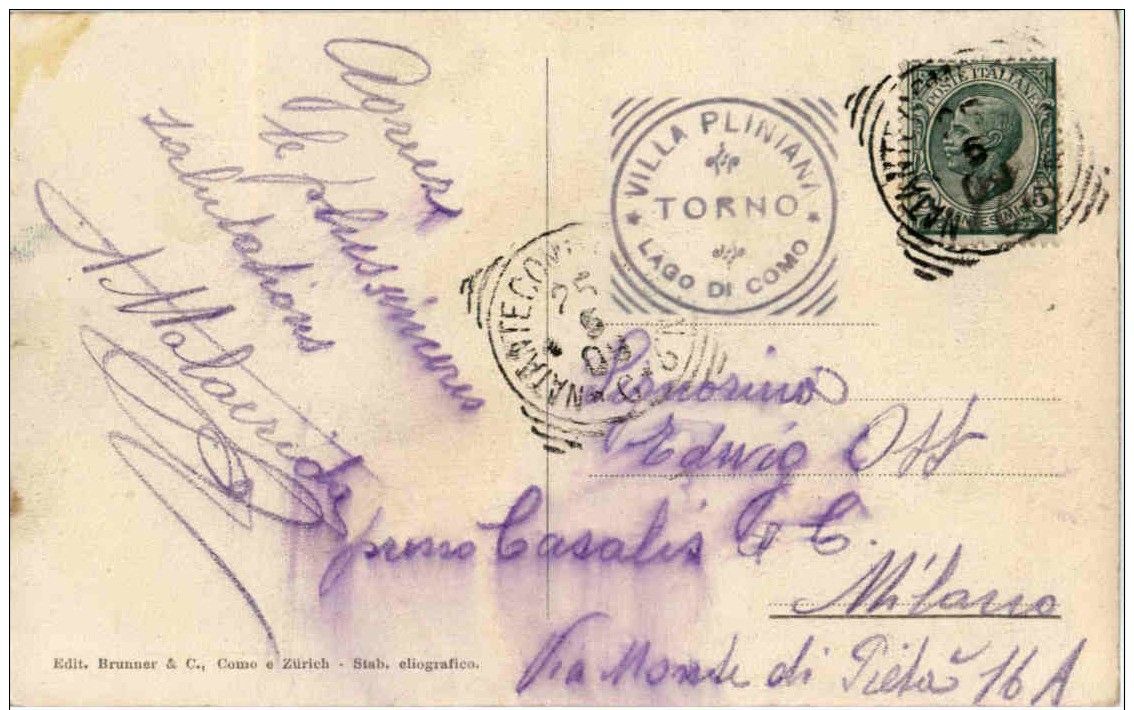 POSTE ITALIANE
5
VILLA PLINIANA
TORNO
LAGO DI COMO
NATANTE COMO
le plussimeres
salutations
A Malacrida
Signorina
Edwig Ott
presso Casalis & C.
Milano
Via Monte di Pietà 16 A
Edit. Brunner & C., Como e Zürich - Stab. eliografico.